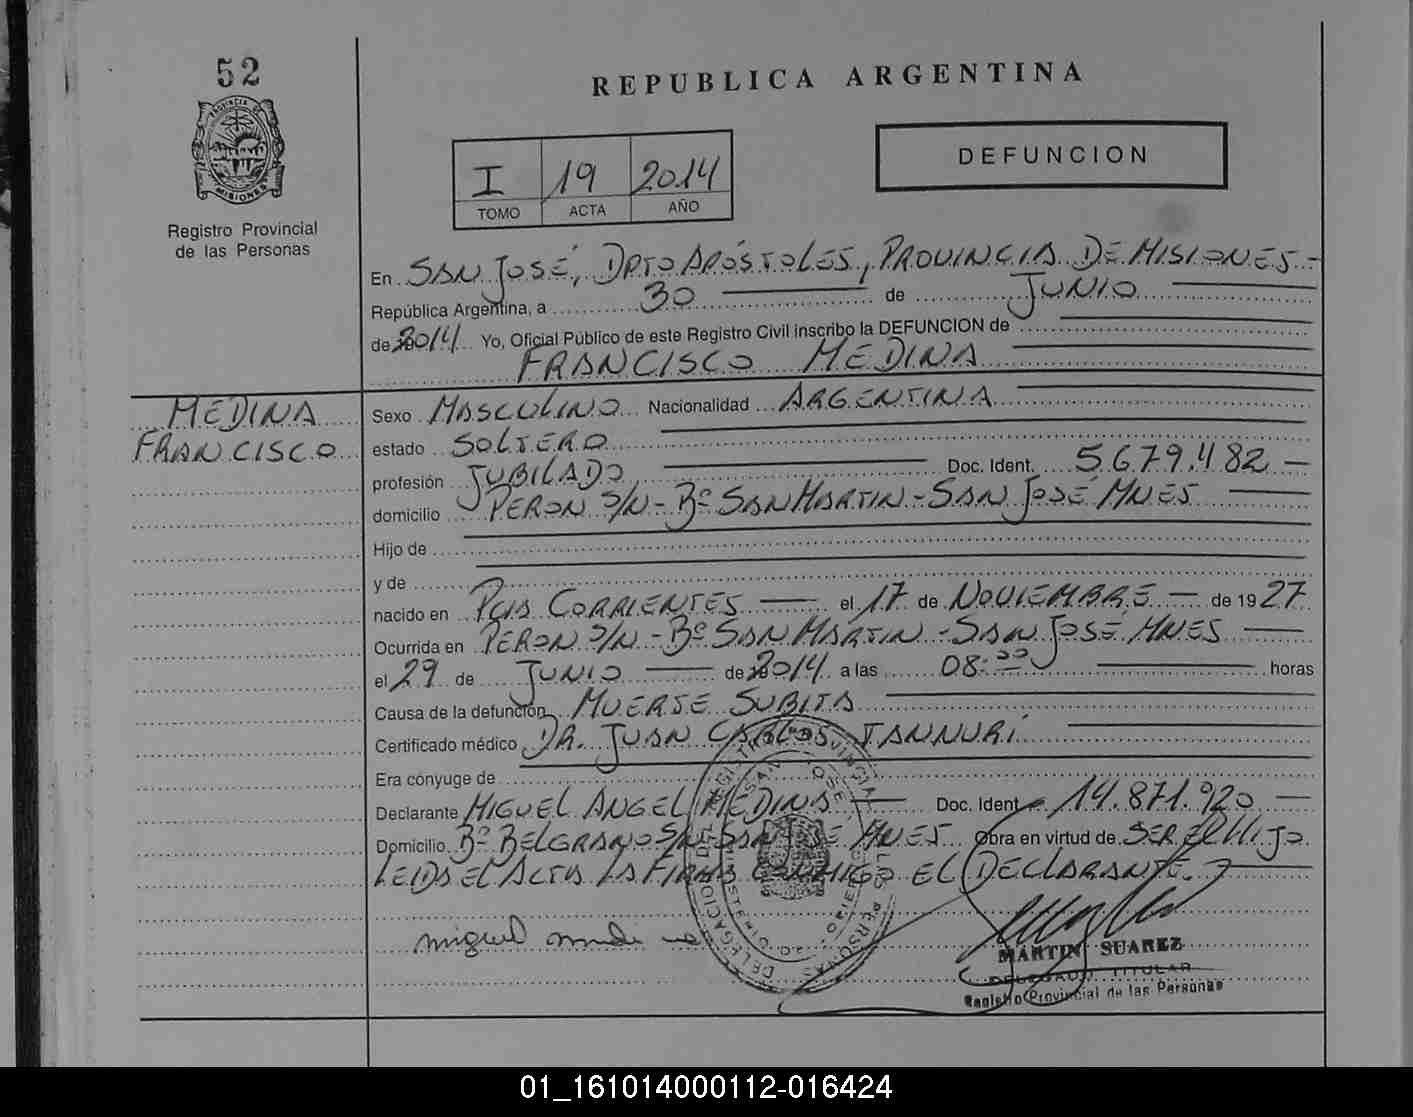 52
PROVINCIA DE
MISIONES
Registro Provincial
de las Personas
REPUBLICA ARGENTINA
I 19 2014
TOMO ACTA AÑO
DEFUNCION
En SAN JOSÉ, DPTO APÓSTOLES, PROVINCIA DE MISIONES.-
República Argentina, a 30 de JUNIO
de 2014 Yo, Oficial Público de este Registro Civil inscribo la DEFUNCION de
FRANCISCO MEDINA
MEDINA
FRANCISCO
Sexo MASCULINO Nacionalidad ARGENTINA
estado SOLTERO
profesión JUBILADO Doc. Ident. 5.679.482 —
domicilio PERON S/N - Bº SAN MARTIN - SAN JOSÉ MNES
Hijo de
y de
nacido en PCIA CORRIENTES — el 17 de NOVIEMBRE — de 1927
Ocurrida en PERON S/N - Bº SAN MARTIN - SAN JOSÉ MNES —
el 29 de JUNIO — de 2014 a las 08:00 horas
Causa de la defunción MUERTE SUBITA
Certificado médico DR. JUAN CARLOS IANNURI
Era cónyuge de
Declarante MIGUEL ANGEL MEDINA — Doc. Ident 14.871.920 —
Domicilio Bº BELGRANO S/N - SAN JOSE MNES Obra en virtud de SER EL HIJO.
LEIDA EL ACTA LA FIRMA CONMIGO EL DECLARANTE.
miguel
MARTIN SUAREZ
DELEGADO TITULAR
Registro Provincial de las Personas
01_161014000112-016424